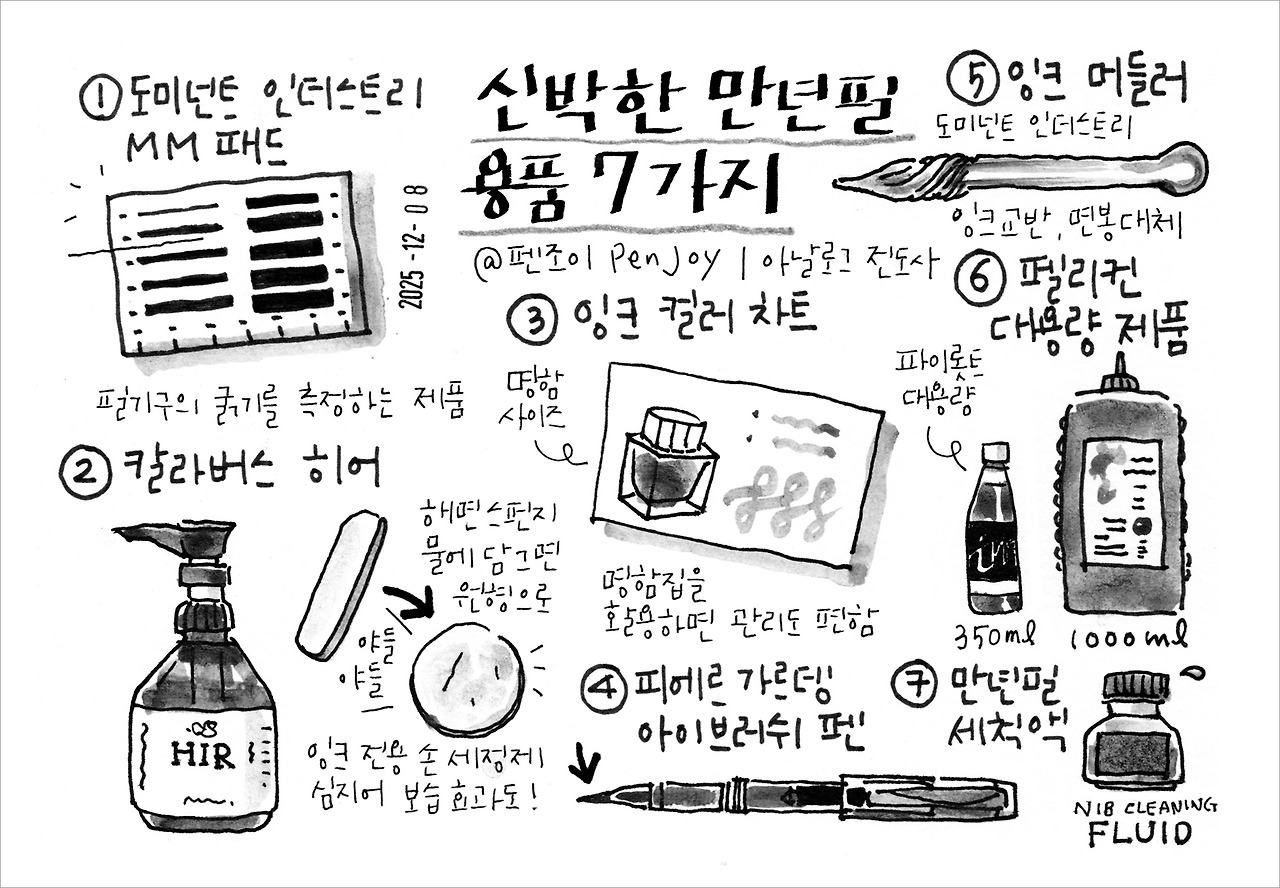 신박한 만년필
용품 7가지
@펜조이 PenJoy | 아날로그 전도사
2025-12-08
① 도미넌트 인더스트리
MM 패드
필기구의 굵기를 측정하는 제품
② 칼라버스 히어
HIR
해면스펀지
물에 담그면
원형으로
야들
야들
잉크 전용 손 세정제
심지어 보습 효과도!
③ 잉크 컬러 차트
명함
사이즈
명함집을
활용하면 관리도 편함
④ 피에르 가르뎅
아이브러쉬 펜
⑤ 잉크 머들러
도미넌트 인더스트리
잉크교반, 면봉대체
⑥ 펠리컨
대용량 제품
파이롯트
대용량
ink
350ml
1000ml
⑦ 만년필
세척액
NIB CLEANING
FLUID